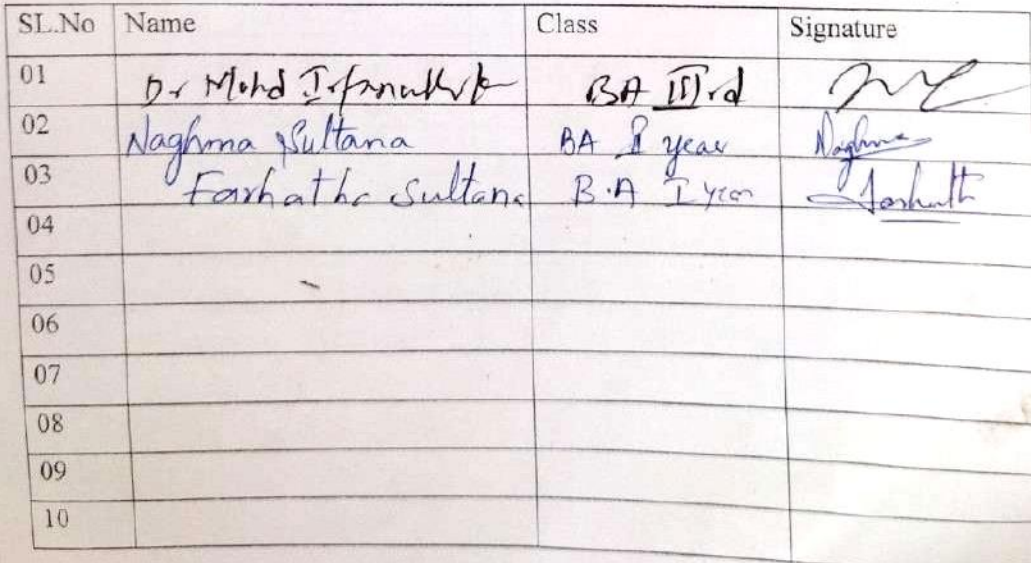 SL.No Name Class Signature
01 Dr Mohd BA IIIrd
02 Naghma Sultana BA I year Naghma
03 Farhatha Sultana B.A I year Farhath
04
05
06
07
08
09
10